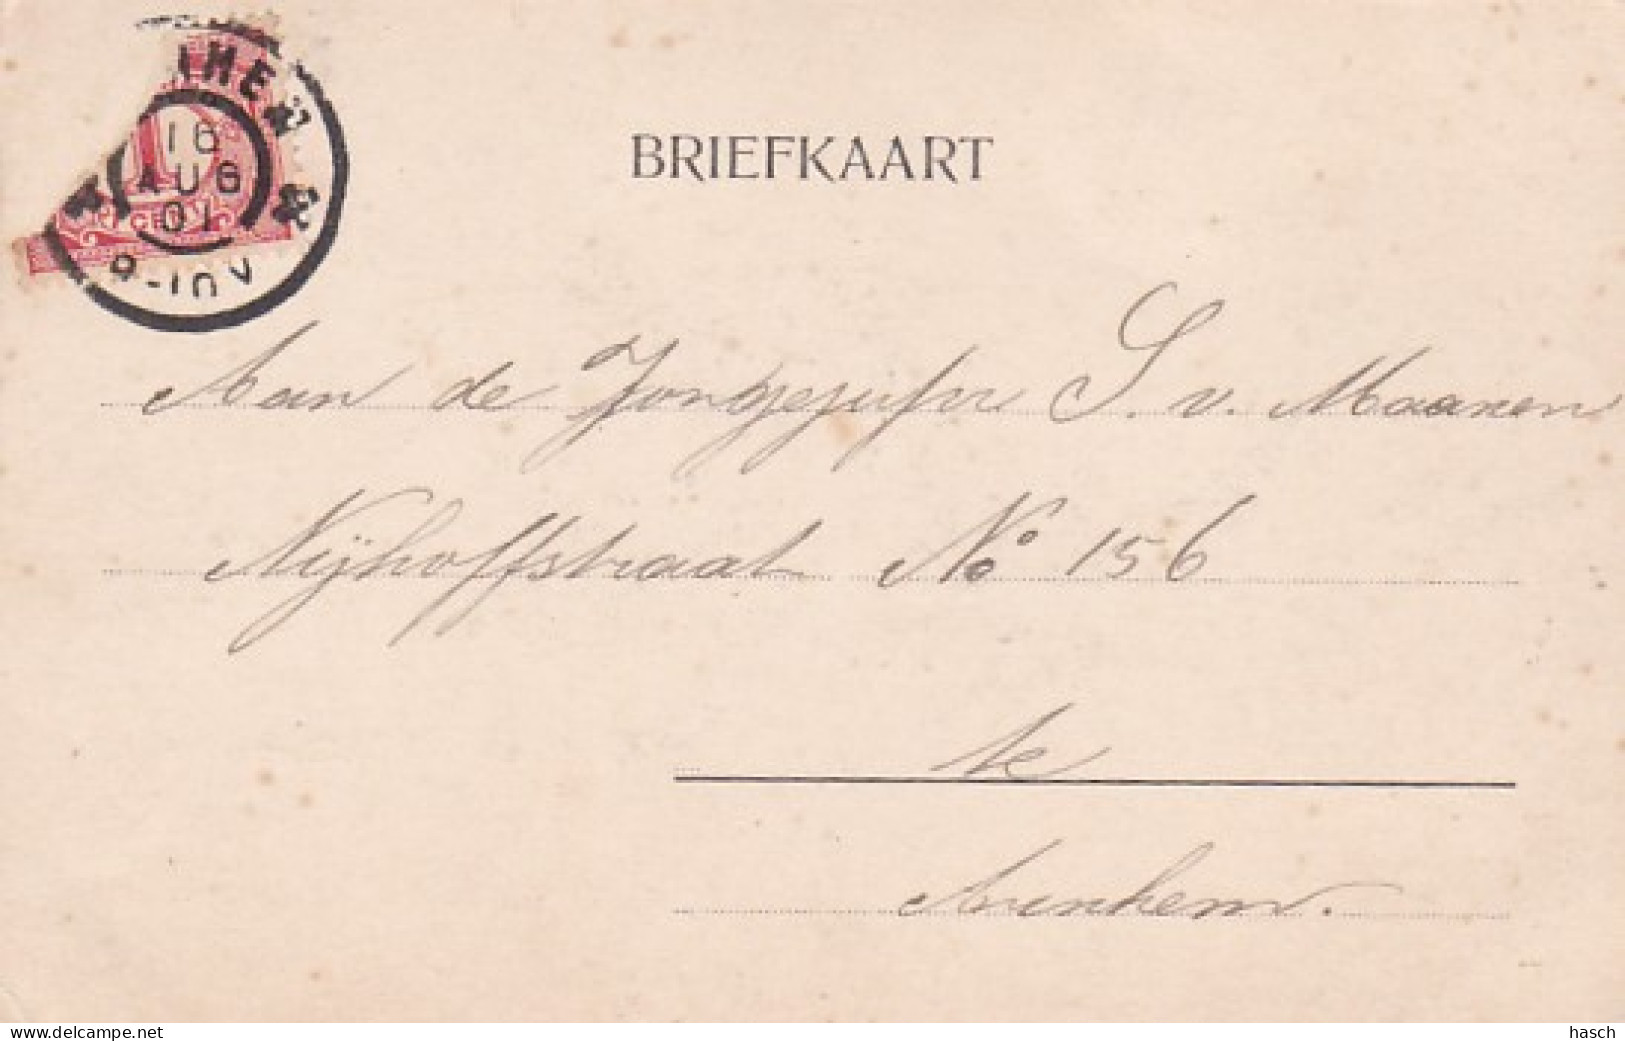 16
AUG
01
BRIEFKAART
Aan de Jongejufvr S. v. Maanen
Nijhoffstraat No 156
te
Arnhem.
www.delcampe.net
hasch